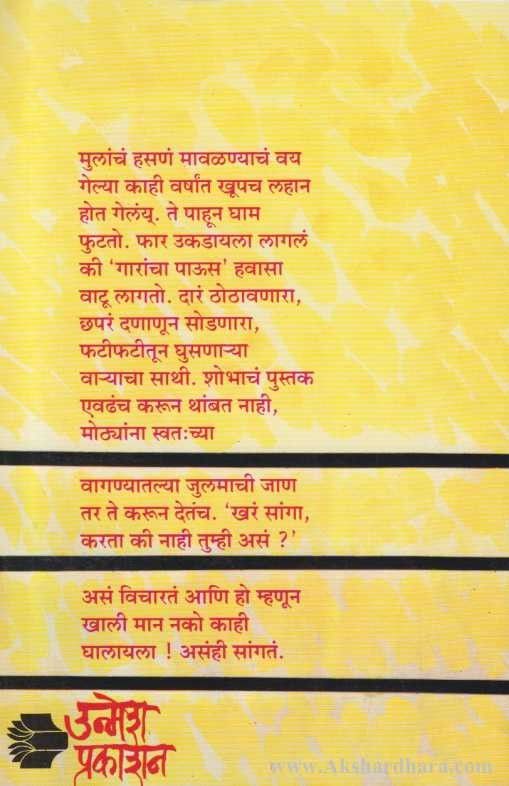 मुलांचं हसणं मावळण्याचं वय
गेल्या काही वर्षांत खूपच लहान
होत गेलंय्. ते पाहून घाम
फुटतो. फार उकडायला लागलं
की ‘गारांचा पाऊस’ हवासा
वाटू लागतो. दारं ठोठावणारा,
छपरं दणाणून सोडणारा,
फटीफटीतून घुसणाऱ्या
वाऱ्याचा साथी. शोभाचं पुस्तक
एवढंच करून थांबत नाही,
मोठ्यांना स्वतःच्या
वागण्यातल्या जुलमाची जाण
तर ते करून देतंच. ‘खरं सांगा,
करता की नाही तुम्ही असं ?’
असं विचारतं आणि हो म्हणून
खाली मान नको काही
घालायला ! असंही सांगतं.
उन्मेष
प्रकाशन
www.Akshardhara.com